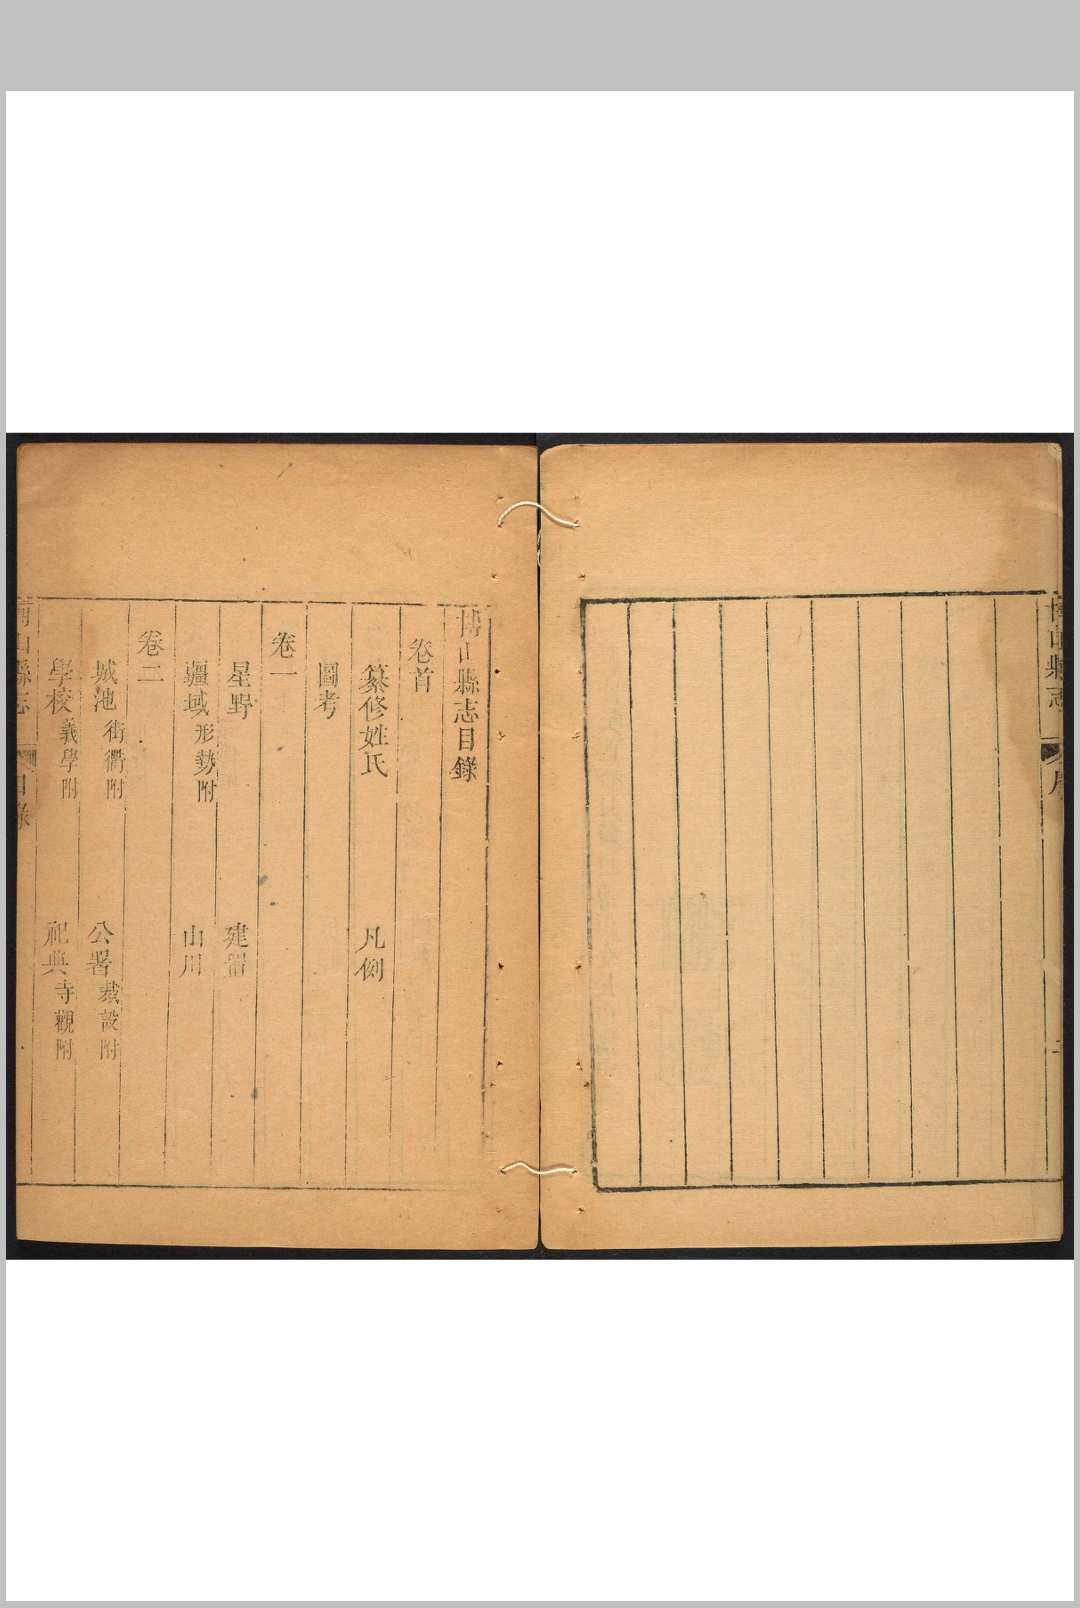 博山縣志
序
博山縣志目錄
卷首
纂修姓氏 凡例
圖考
卷一
星野 建置
疆域形勢附 山川
卷二
城池街衢附 公署裁設附
學校義學附 祀典寺觀附
博山縣志 目錄